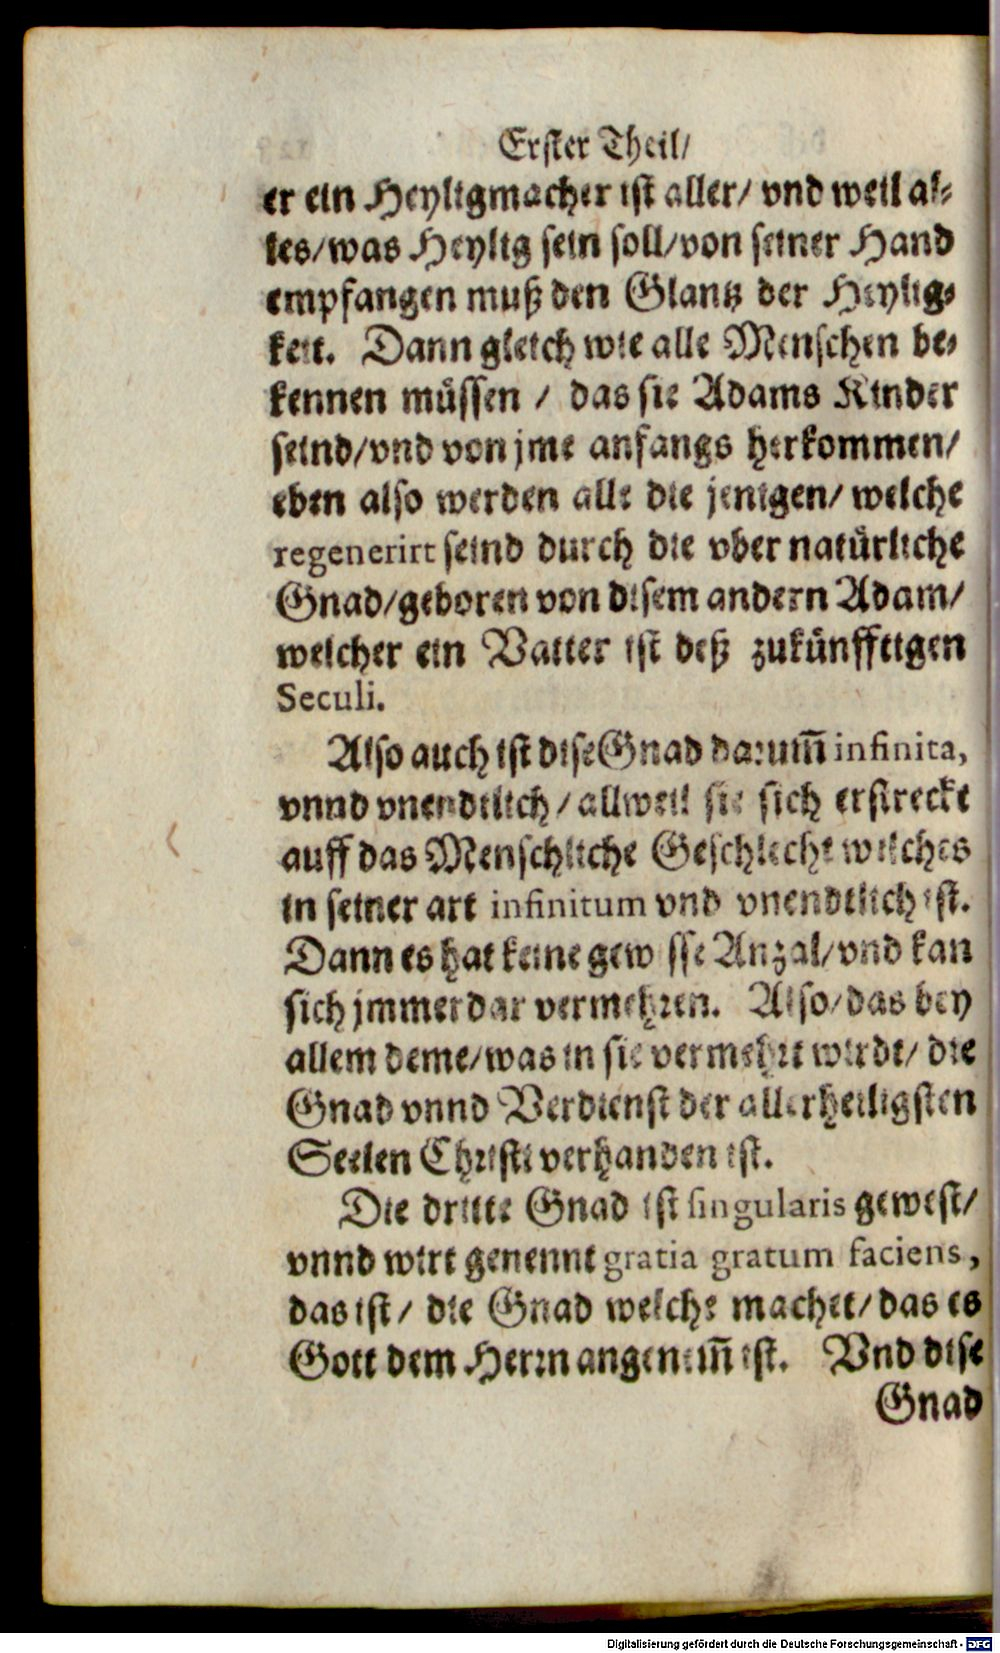 Erster Theil/
er ein Heyligmacher ist aller/ vnd weil al-
les/was Heylig sein soll/von seiner Hand
empfangen muß den Glantz der Heylig-
keit. Dann gleich wie alle Menschen be-
kennen müssen / das sie Adams Kinder
seind/vnd von jme anfangs herkommen/
eben also werden alle die jenigen/ welche
regenerirt seind durch die vber natürliche
Gnad/geboren von disem andern Adam/
welcher ein Vatter ist deß zukünfftigen
Seculi.
Also auch ist dise Gnad darum̃ infinita,
vnnd vnendtlich/ allweil sie sich erstreckt
auff das Menschliche Geschlecht welches
in seiner art infinitum vnd vnendtlich ist.
Dann es hat keine gewisse Anzal/vnd kan
sich jmmerdar vermehren. Also/das bey
allem deme/was in sie vermehrt wirdt/ die
Gnad vnnd Verdienst der allerheiligsten
Seelen Christi verhanden ist.
Die dritte Gnad ist singularis gewest/
vnnd wirt genennt gratia gratum faciens,
das ist/ die Gnad welche machet/das es
Gott dem Herrn angenem̃ ist. Vnd dise
Gnad
Digitalisierung gefördert durch die Deutsche Forschungsgemeinschaft - DFG